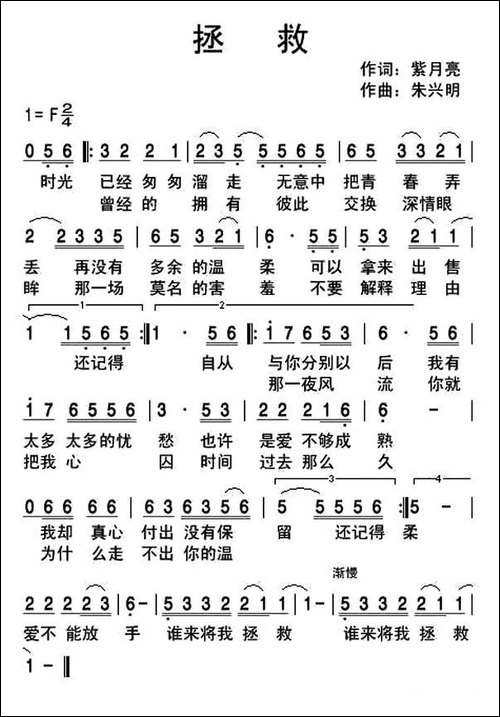 拯 救
作词：紫月亮
作曲：朱兴明
1=F 2/4
0 5 6 |: 3 2 2 1 | 2 3 5 5 5 6 5 | 6 5 3 3 2 1 |
时光 已经 匆匆 溜走 无意中 把青 春弄
曾经 的 拥有 彼此 交换 深情眼
2 2 3 3 5 | 6 5 1 2 1 | 6 · 5 5 | 5 3 2 1 1 |
丢 再没有 多余 的温 柔 可以 拿来 出售
眸 那一场 莫名 的害 羞 不要 解释 理由
1 2
1 1 5 6 5 :| 1 · 5 6 |: 1 7 6 5 3 | 6 · 5 6 |
还记得 自从 与你分别以 后 我有
那一夜风 流 你就
1 7 6 5 5 6 | 3 · 5 5 | 2 2 2 1 6 | 6 - |
太多 太多的忧 愁 也许 是爱 不够成 熟
把我 心 囚 时间 过去 那么 久
3 4
0 6 6 6 6 | 6 3 6 3 5 6 | 5 5 5 5 6 :| 5 - |
我却 真心 付出 没有保 留 还记得 柔
为什 么走 不出 你的温
渐慢
2 2 2 2 3 | 6 - | 5 3 3 2 2 1 1 | 5 3 3 2 2 1 1 |
爱不 能放 手 谁来将我 拯 救 谁来将我 拯 救
1 - ‖